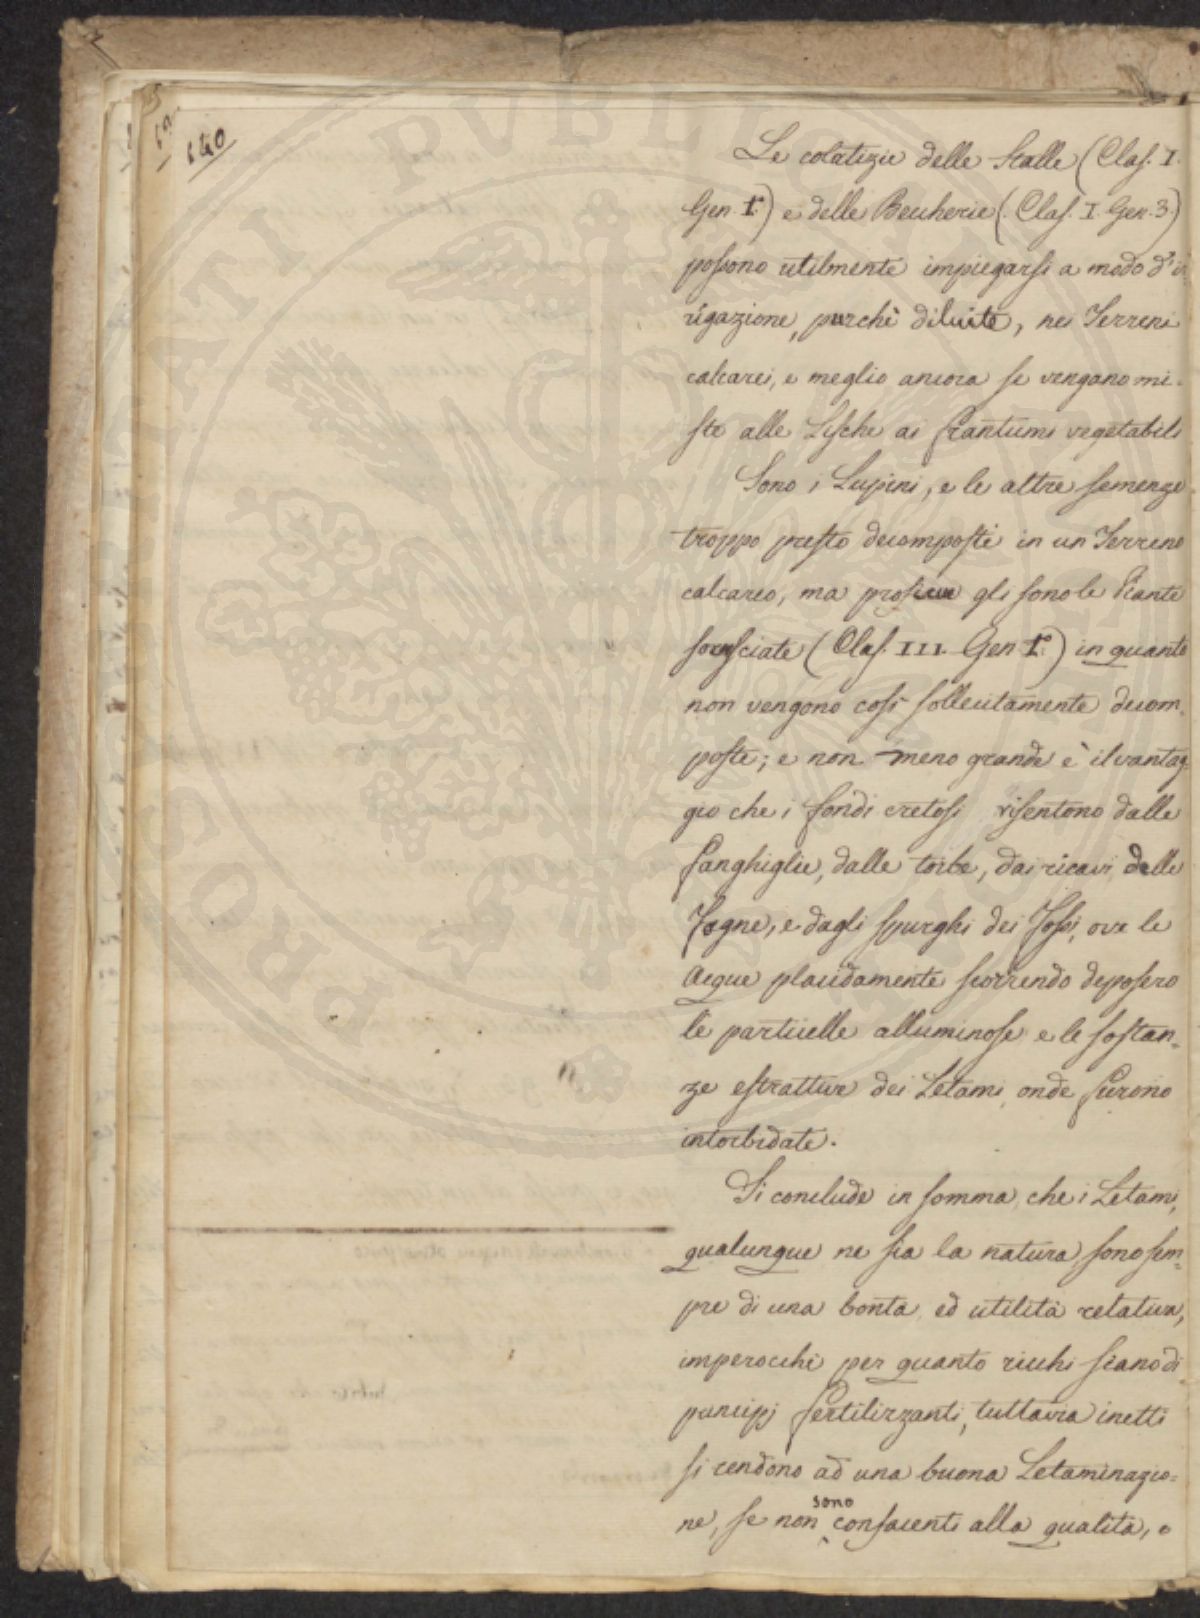 140
Le colatizie delle Stalle (Clas. I.
Gen. 1.º) e delle Beccherie (Clas. I. Gen. 3.)
possono utilmente impiegarsi a modo d'ir
rigazione, purchè diluite, nei Terreni
calcarei, e meglio ancora se vengano mi-
ste alle Lische ai frantumi vegetabili
Sono i Lupini, e le altre semenze
troppo presto decomposte in un Terreno
calcareo, ma proficue gli sono le Piante
(Clas. III. Gen 1.º) in quanto
non vengono così sollecitamente decom-
poste; e non meno grande è il vantag-
gio che i fondi cretosi risentono dalle
fanghiglie, dalle torbe, dai ricavi delle
Fogne, e dagli spurghi dei Fossi, ove le
Acque placidamente scorrendo deposero
le particelle alluminose e le sostan=
ze estrattive dei Letami, onde furono
intorbidate.
Si conclude in somma, che i Letami,
qualunque ne sia la natura, sono sem=
pre di una bontà ed utilità relativa,
imperocchè per quanto ricchi siano di
principj fertilizzanti, tuttavia inetti
si rendono ad una buona Letaminazio=
sono
ne, se non confacenti alla qualità, e
PROSPERITATI PUBLICAE